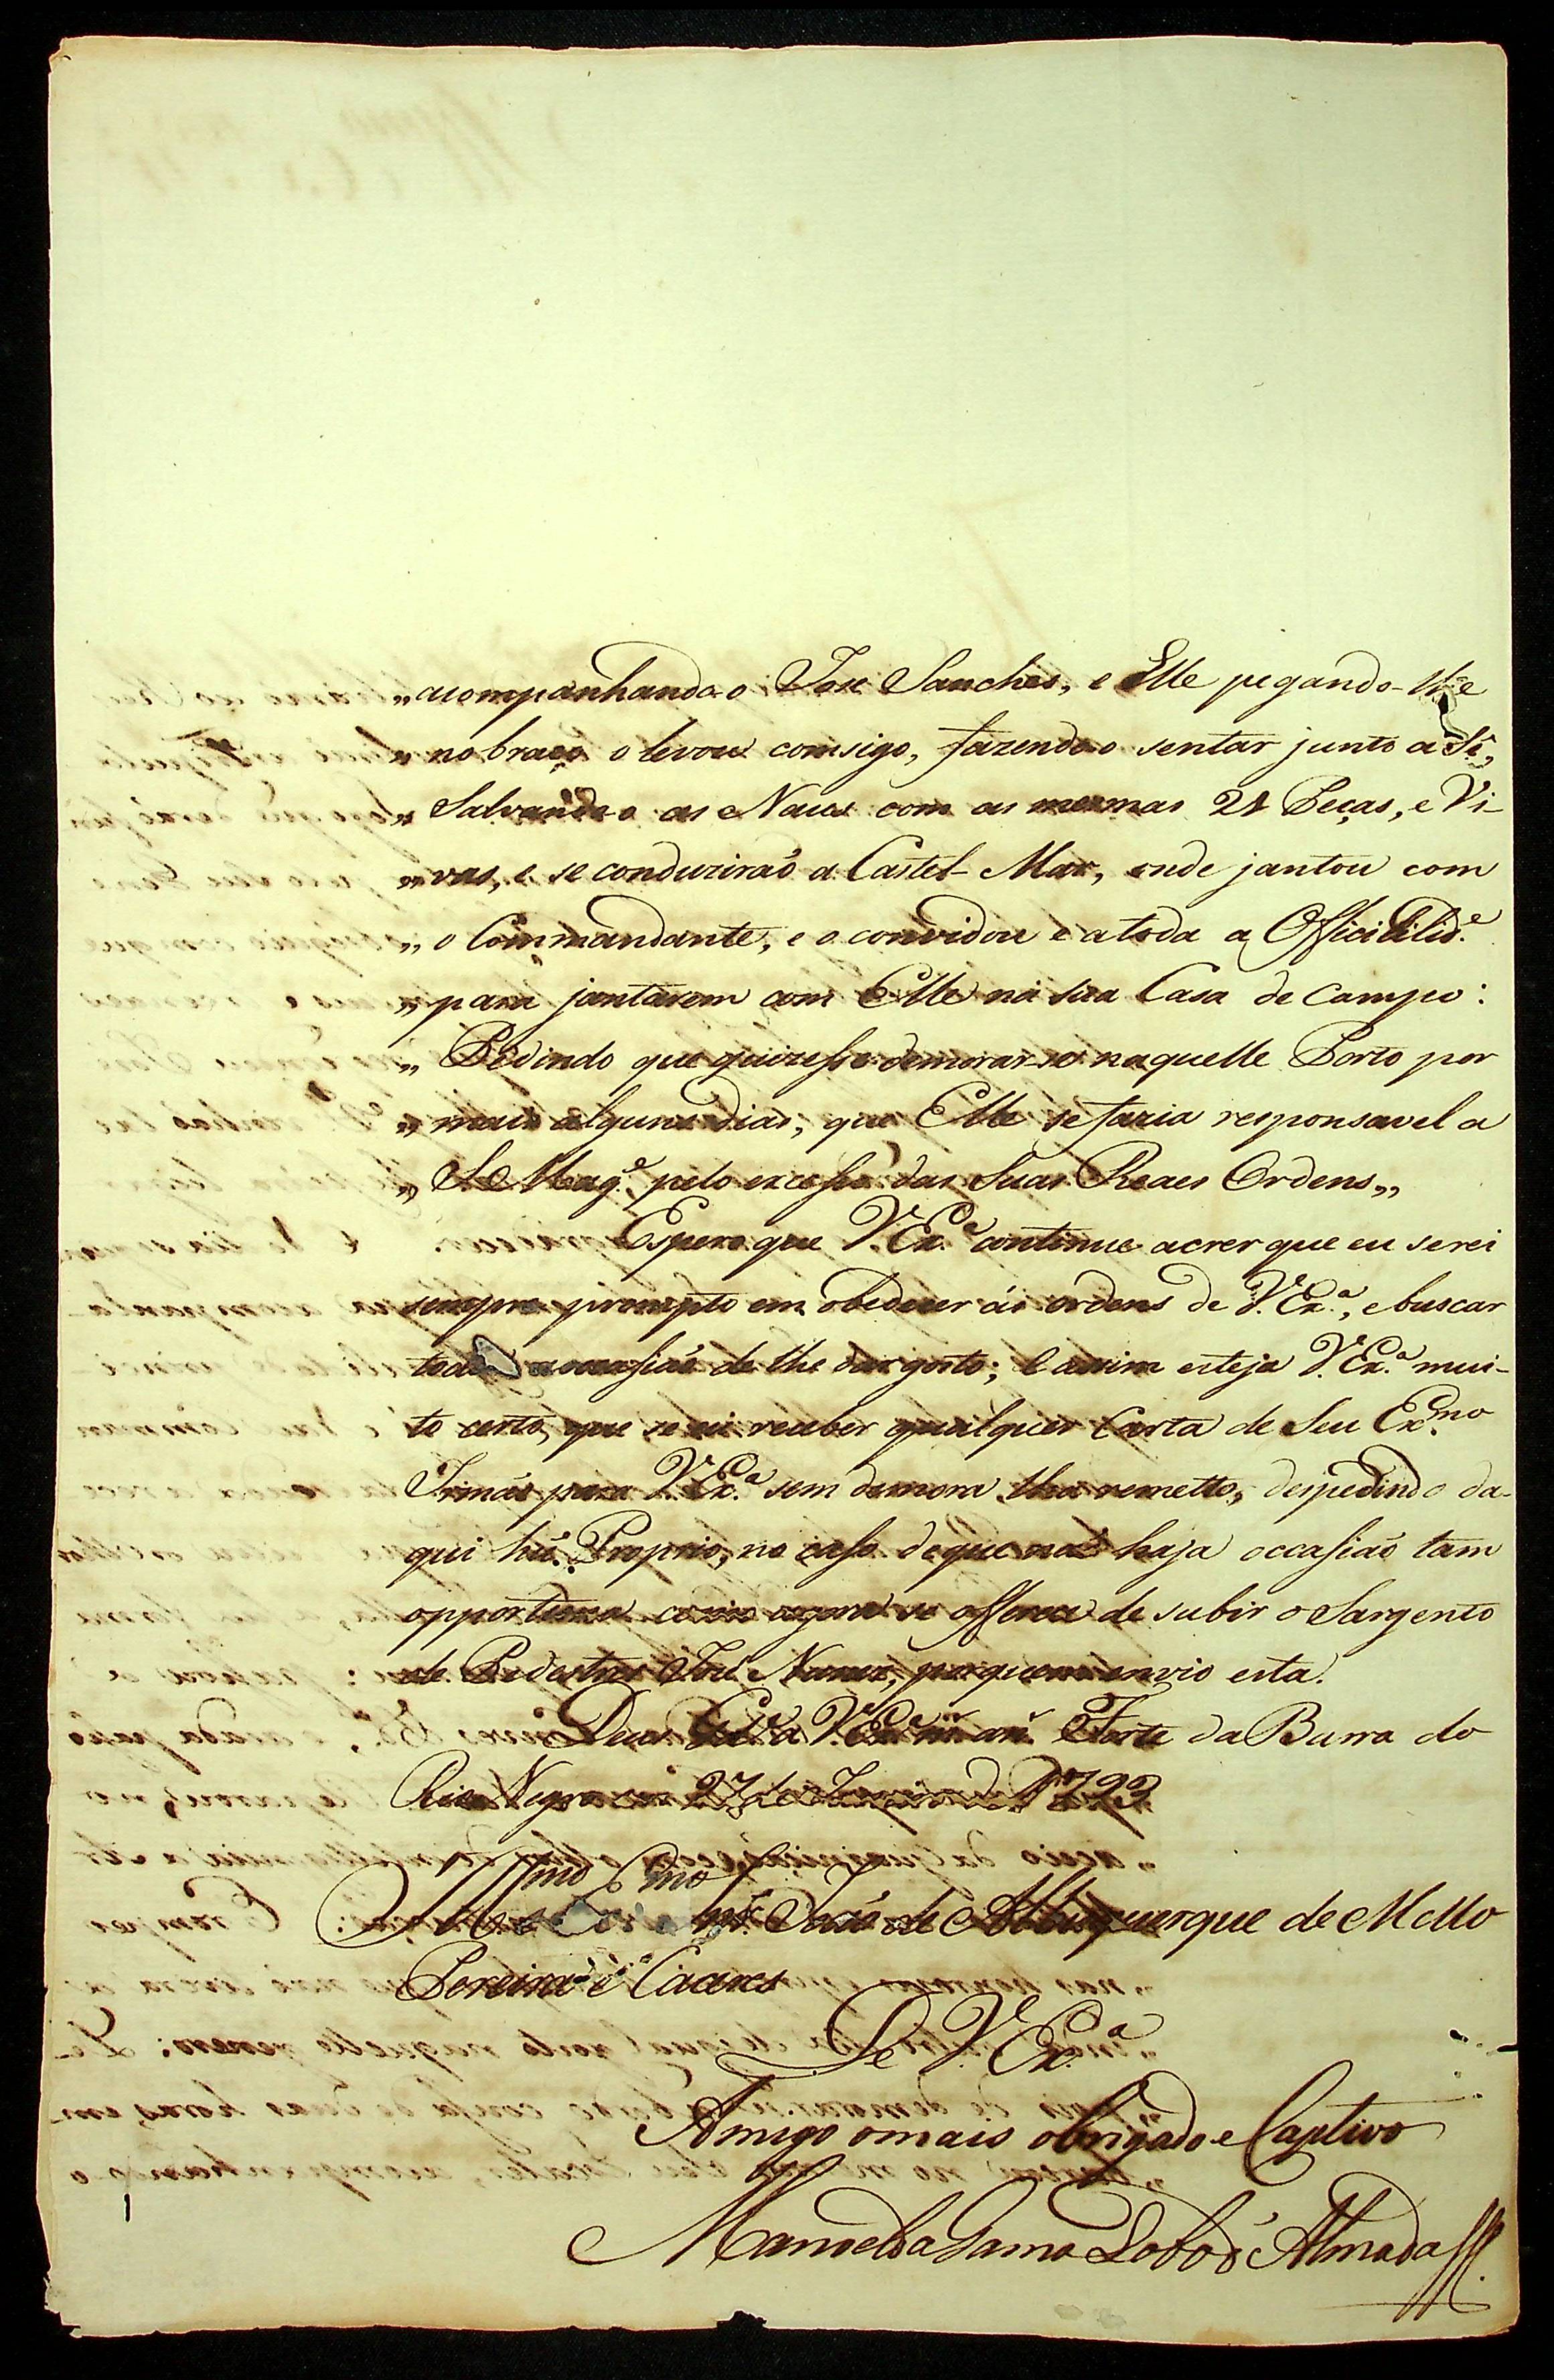 „acompanhando-o Jose Sanches, e Elle pegando-lhe
„ no braço o levou comsigo, fazendo-o sentar junto a Si,
„ Salvando-o as Naus com as mesmas 21 Peças, e Vi-
„vas, e se conduzirão a Castel-Mar, onde jantou com
„ o Commandante, e o convidou e a toda a Officialid.e
„ para jantarem com Elle na sua Casa de Campo:
„ Pedindo que quizesse demorar-se naquelle Porto por
„ mais alguns dias, que Elle se faria responsavel a
„ S. Mag.e pelo excesso das Suas Reaes Ordens„
Espero que V. Ex.a continue a crer que eu serei
sempre prompto em obedecer ás ordens de V. Ex.a, e buscar
toda a occasião de lhe dar gosto; e assim esteja V. Ex.a mui-
to certo, que se eu receber qualquer Carta de Seu Ex.mo
Irmão para V. Ex.a sem demora lha remetto, despedindo da-
qui hũ Proprio, no caso de que não haja occasião tam
opportuna como agora se offerece de subir o Sargento
de Pedestres José Nunes, por quem envio esta.
Deos G.de a V. Ex.a m.s an.s Forte da Barra do
Rio Negro em 27 de de 1793
Ill.mo e Ex.mo Snr. João de Albuquerque de Mello
Pereira e Caceres
De V. Ex.a
Amigo o mais obrigado e Captivo
Manoel da Gama Lobo d'Almada